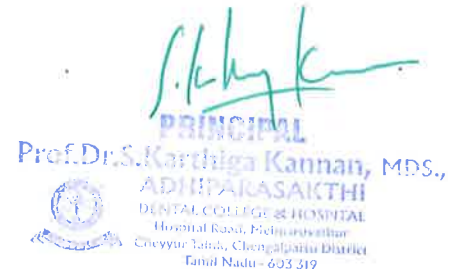 PRINCIPAL
Prof.Dr.S.Karthiga Kannan, MDS.,
ADHIPARASAKTHI
DENTAL COLLEGE & HOSPITAL
Hospital Road, Melmaruvathur
Cheyyur Taluk, Chengalpattu District
Tamil Nadu - 603 319